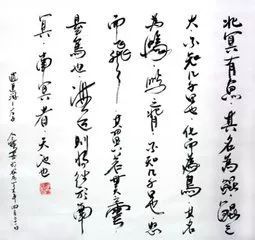 北冥有魚其名為鯤鯤之
大不知几千里也化而為鳥其名
為鵬鵬之背不知几千里也怒
而飛其翼若垂天之雲
是鳥也海运則將徙於南
冥南冥者天池也